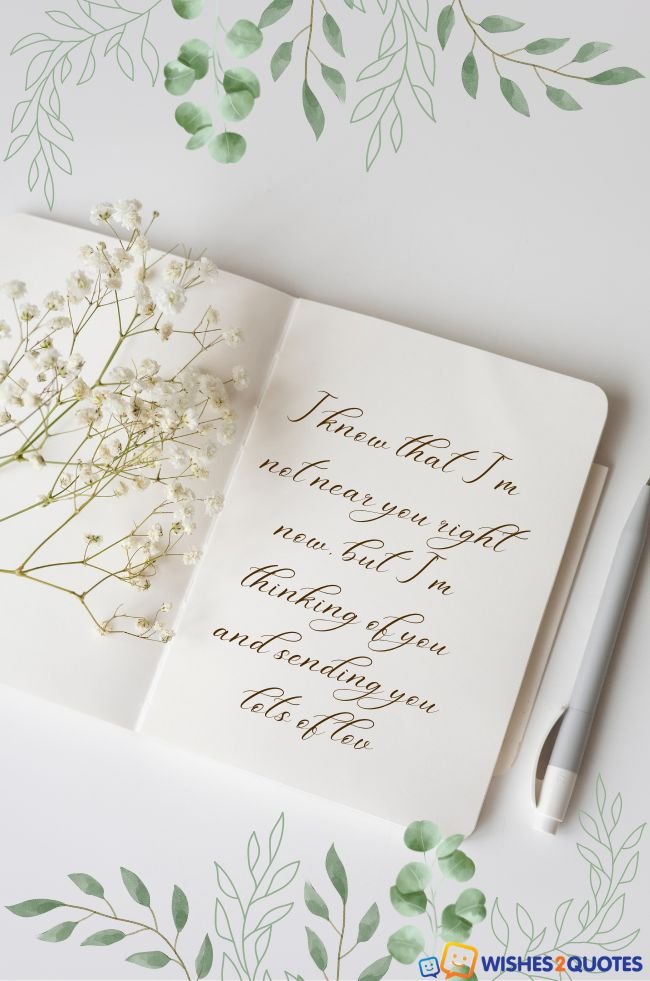 I know that I'm
not near you right
now. but I'm
thinking of you
and sending you
lots of lov
WISHES2QUOTES